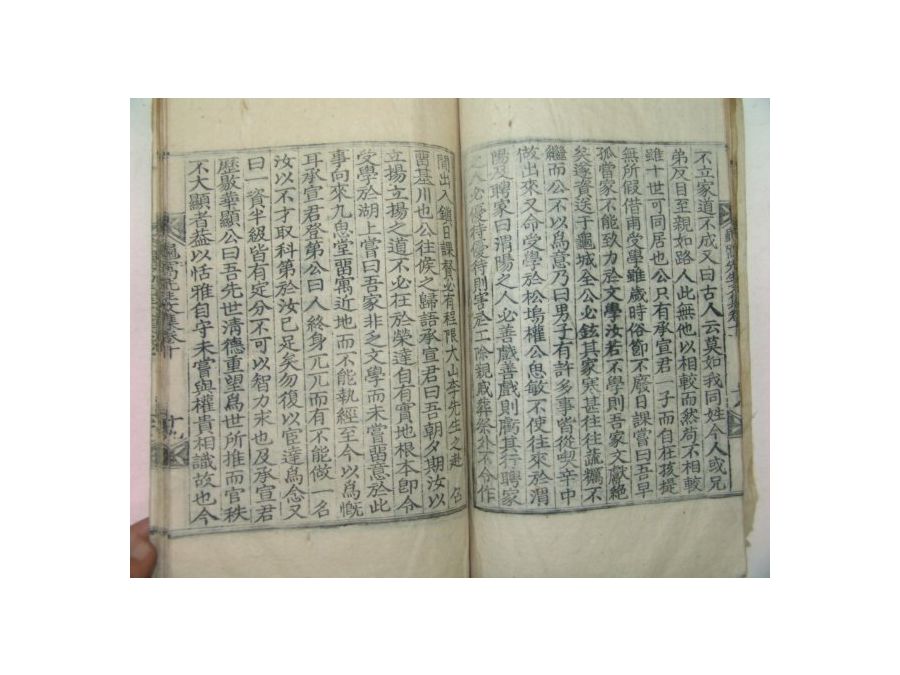 不立家道不成又曰古人云莫如我同姓今人或兄
弟反目至親如路人此無他以相較而然苟不相較
雖十世可同居也公只有承宣君一子而自在孩提
無所假借甫受學雖歲時俗節不廢日課嘗曰吾早
孤嘗家不能致力於文學汝若不學則吾家文獻絶
矣遂資送于龜城全公必鉉其家寒甚往往蔬糲不
繼而公不以爲意乃曰男子有許多事皆從喫辛中
做出來又命受學於松塢權公思敏不使往來於渭
陽及聘家曰渭陽之人必善戲善戲則廣其行聘家
之人必優待優待則害於工除親戚葬祭外不令作
閒出入雖日課賛必有程限大山李先生之赴任
畱基川也公往候之歸語承宣君曰吾朝夕期汝以
立揚立揚之道不必在於榮達自有實地根本卽今
受學於湖上嘗曰吾家非之文學而未嘗畱意於此
事向來九思堂畱寓近地而不能執經至今以爲慨
耳承宣君登第公曰人終身兀兀而有不能做一名
汝以不才取科第於汝已足矣勿復以宦達爲念又
曰一資半級皆有定分不可以智力求也及承宣君
歷敭華顯公曰吾先世淸德重望爲世所推而官秩
不大顯者葢以恬雅自守未嘗與權貴相識故也今